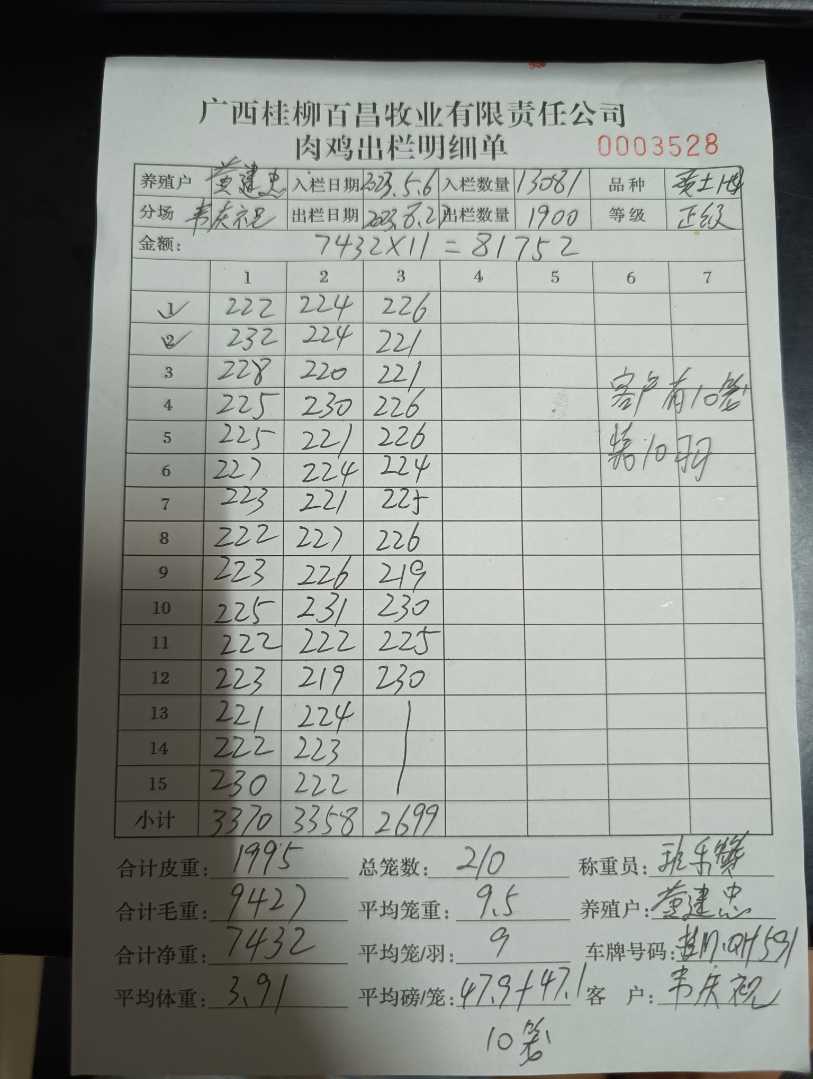 广西桂柳百昌牧业有限责任公司
肉鸡出栏明细单 0003528
养殖户 黄建忠 入栏日期 2023.5.6 入栏数量 13081 品种 黄土1号
分场 韦庆祝 出栏日期 出栏数量 1900 等级 正级
金额: 7432×11=81752
1 2 3 4 5 6 7
1 222 224 226
2 232 224 221
3 228 220 221
4 225 230 226 客户有10笼
5 225 221 226 装10羽
6 227 224 224
7 223 221 225
8 222 227 226
9 223 226 219
10 225 231 230
11 222 222 225
12 223 219 230
13 221 224
14 222 223
15 230 222
小计 3370 3358 2699
合计皮重: 1995 总笼数: 210 称重员:
合计毛重: 9427 平均笼重: 9.5 养殖户: 黄建忠
合计净重: 7432 平均笼/羽: 9 车牌号码:
平均体重: 3.91 平均磅/笼: 47.9+47.1 客 户: 韦庆祝
10笼